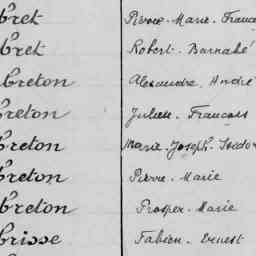 bret Pierre-Marie-Franço
bret Robert-Barnabé
breton Alexandre, André
breton Julien-François
breton Marie-Joseph-Isidor
breton Pierre-Marie
breton Prosper-Marie
brisse Fabien-Ernest